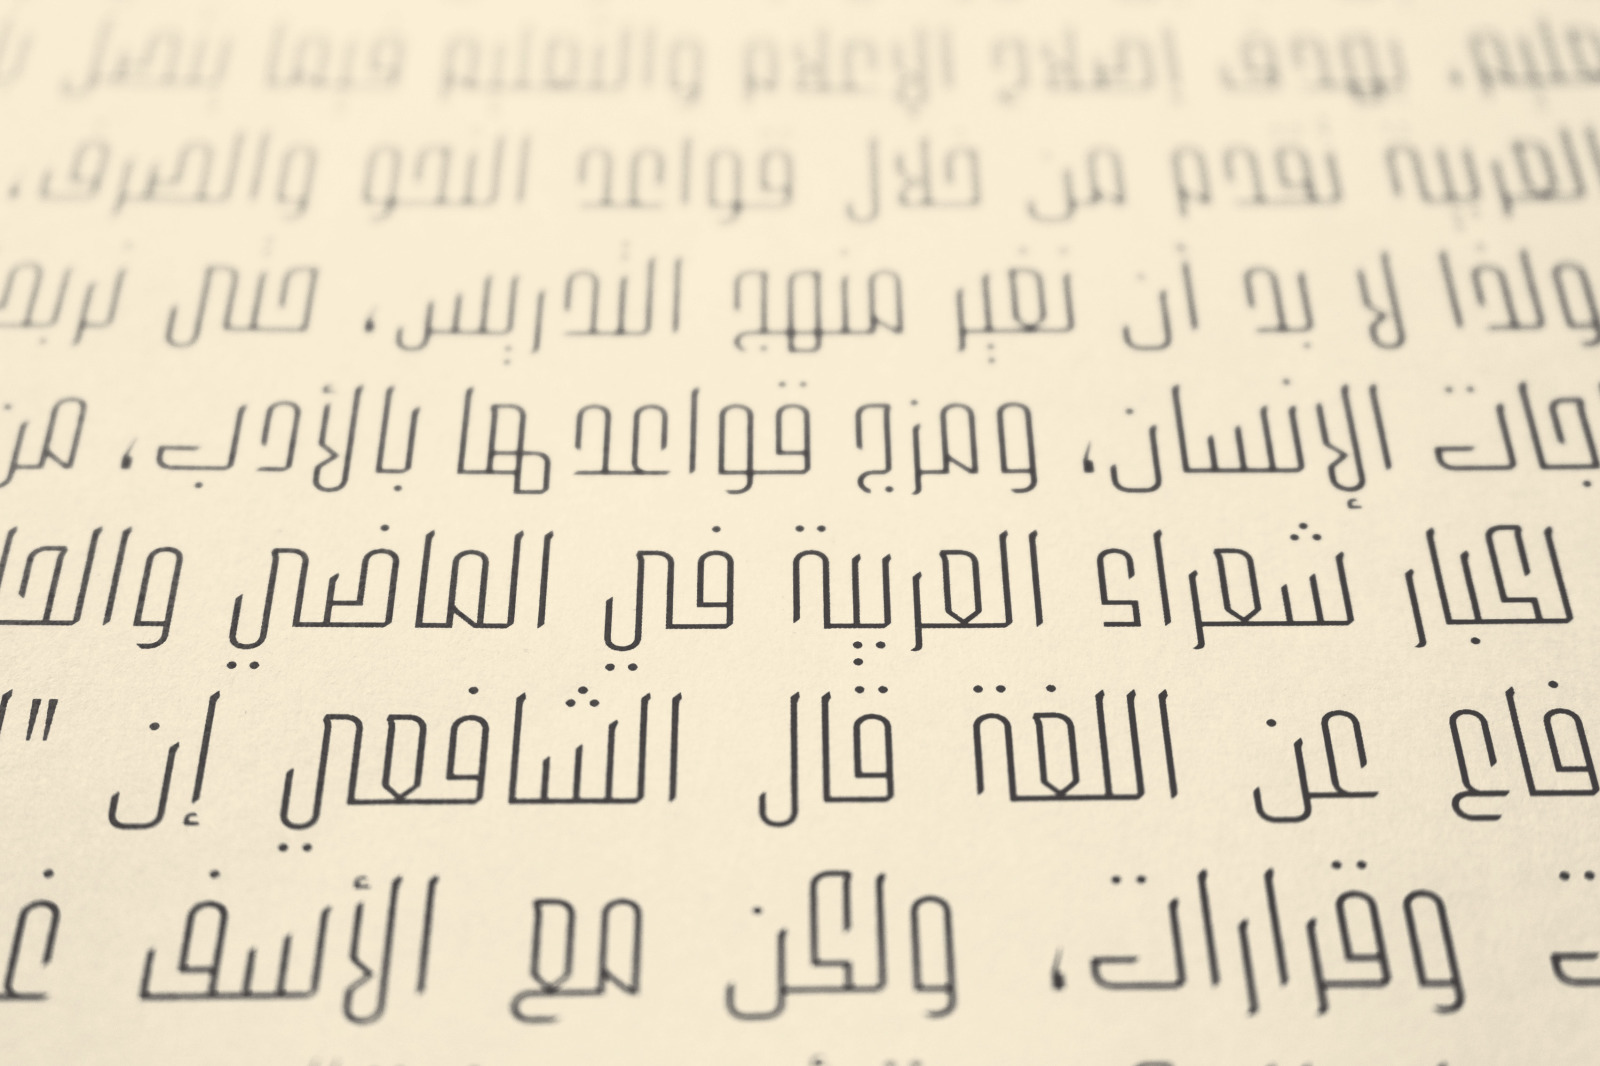 يهدف إصلاح الإعلام والتعليم فيما يتصل
العربية تقدم من خلال قواعد النحو والصرف.
ولذا لا بد أن نغير منهج التدريس، حتى
الإنسان، ومزج قواعدها بالأدب، من
لكبار شعراء العربية في الماضي
عن اللغة قال الشافعي إن "
وقرارات، ولكن مع الأسف